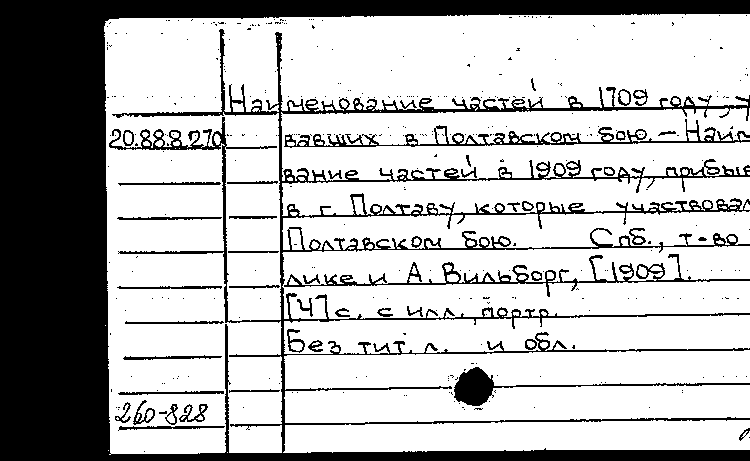 Наименование частей в 1709 году, у
20.88.8.270 вавших в Полтавском бою. – Наим
вание частей в 1909 году, прибыв
в г. Полтаву, которые участвовал
Полтавском бою. Спб., т-во
лике и А. Вильборг, [1909].
[4] с. с илл., портр.
Без тит. л. и обл.
260-828